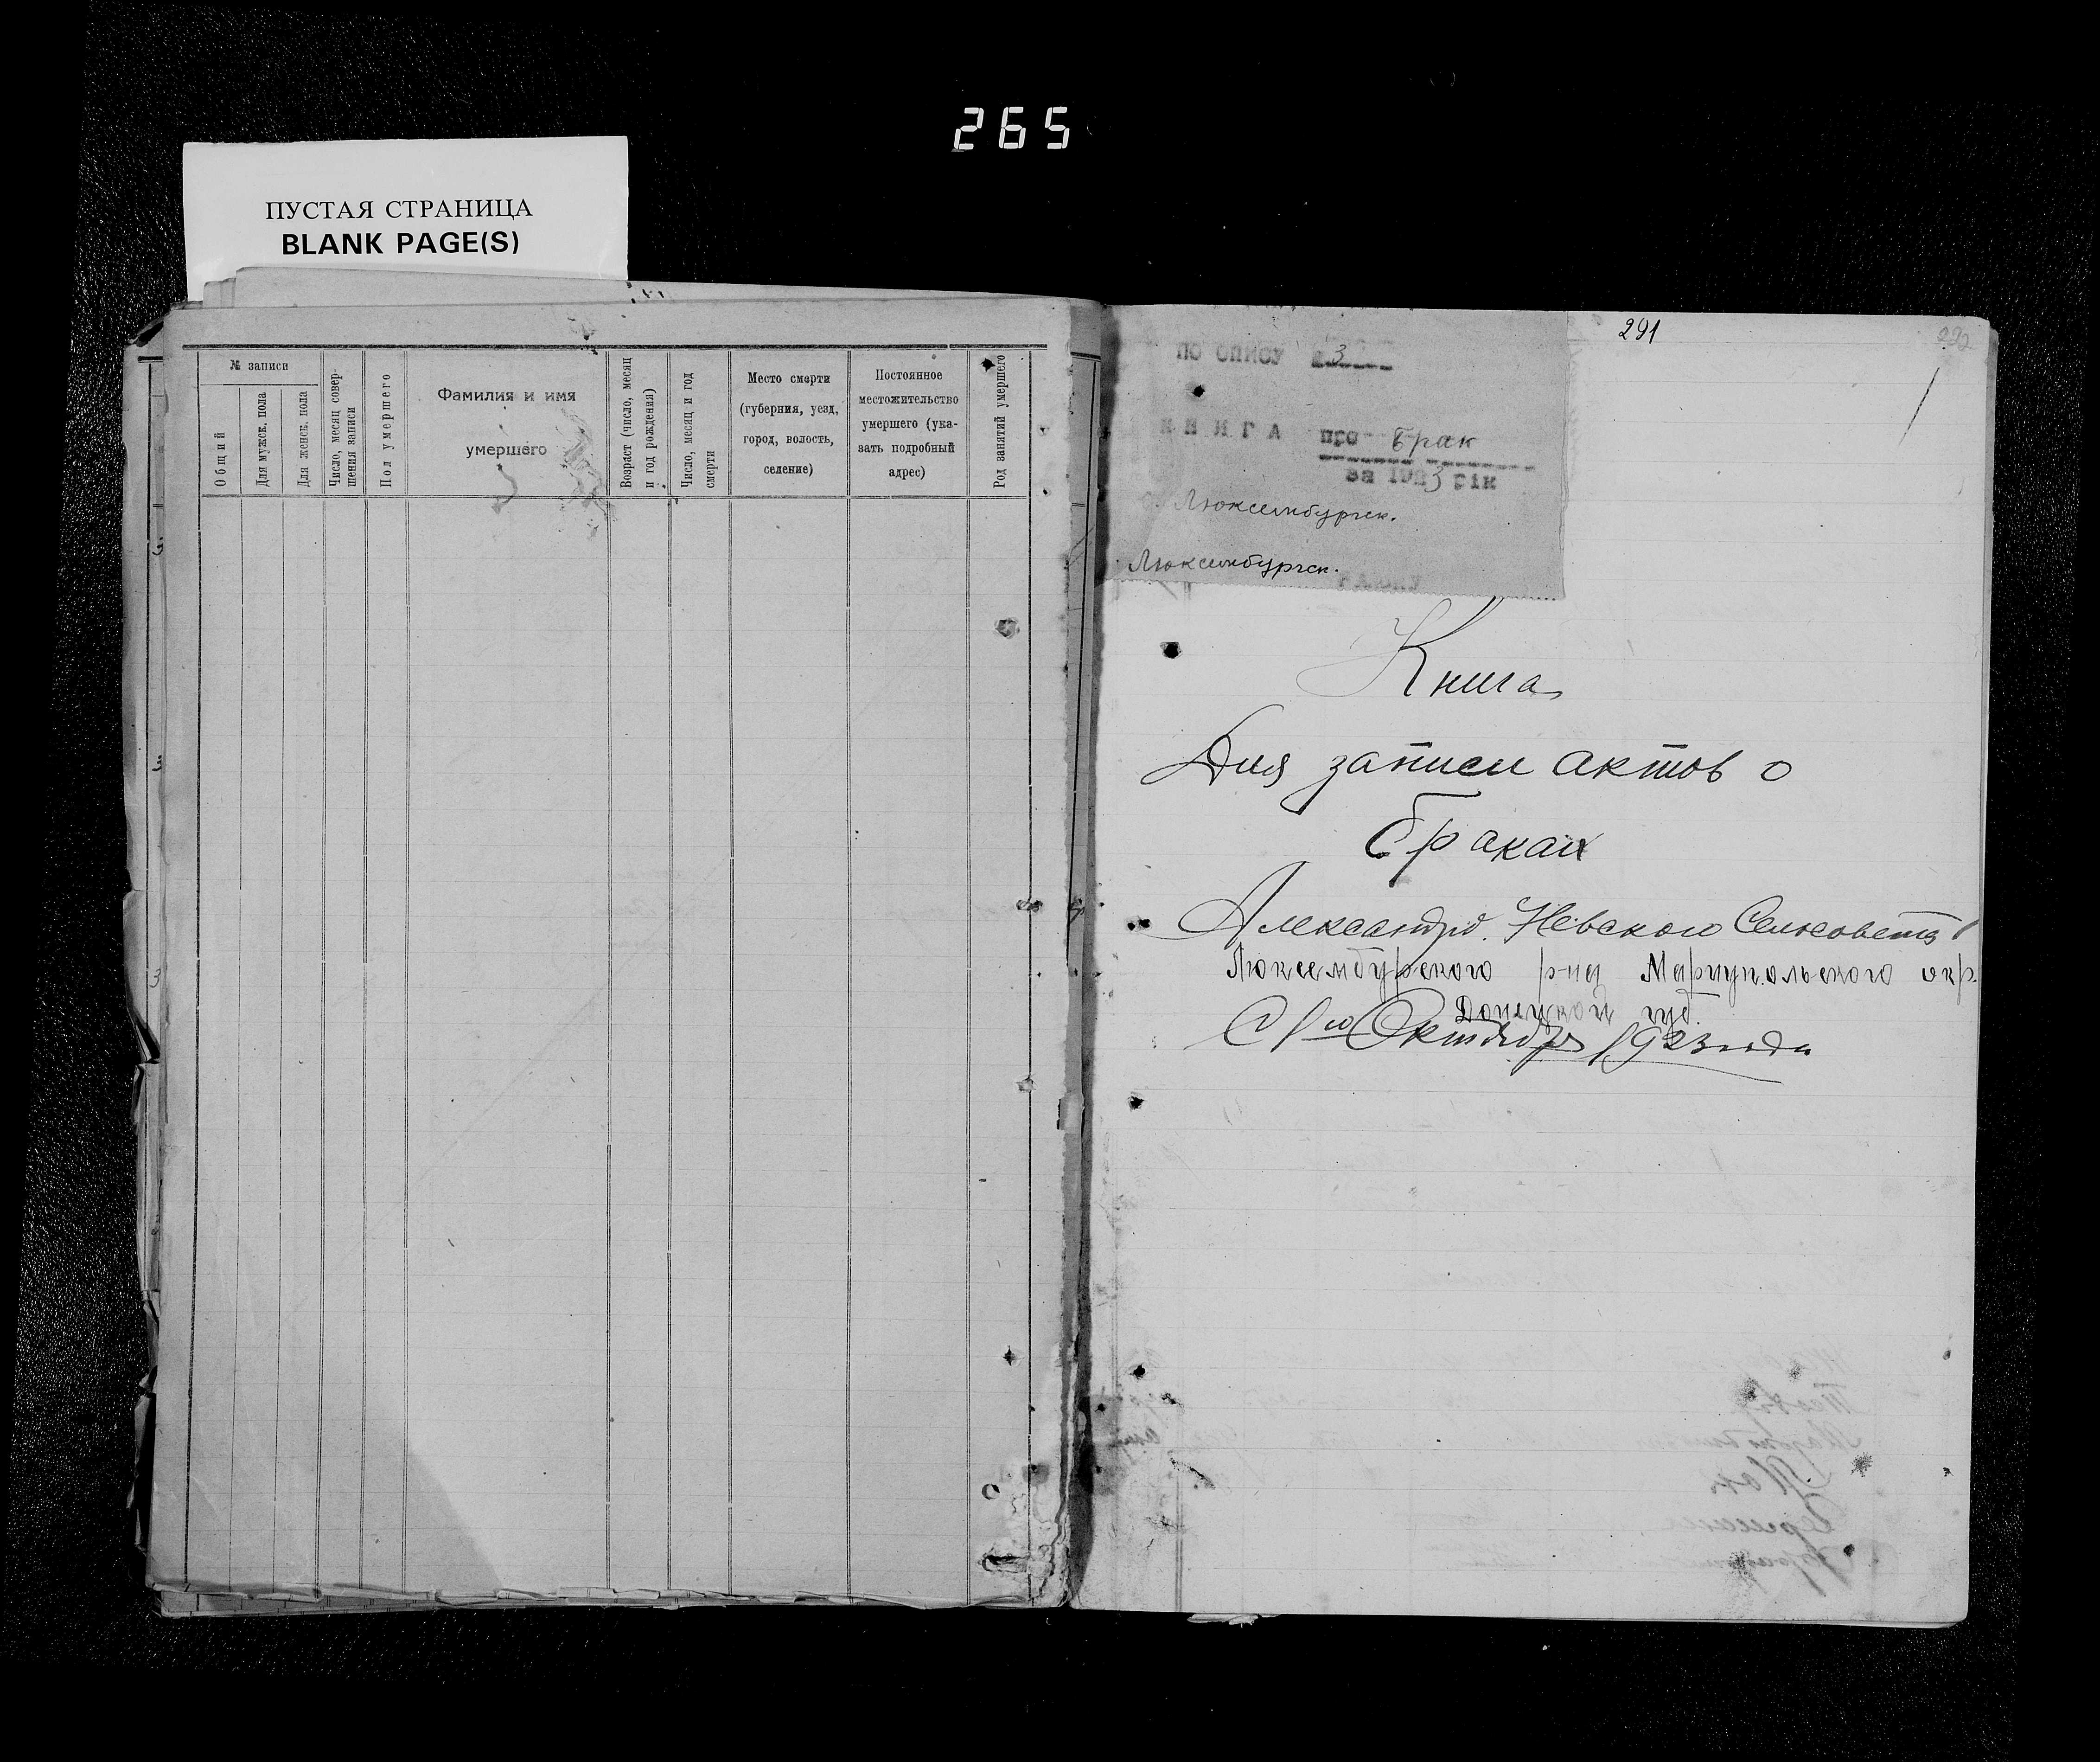 265
ПУСТАЯ СТРАНИЦА
BLANK PAGE(S)
№ записи
Общий
Для мужск. пола
Для женск. пола
Число, месяц совер-
шения записи
Пол умершего
Фамилия и имя
умершего
Возраст (число, месяц
и год рождения)
Число, месяц и год
смерти
Место смерти
(губерния, уезд,
город, волость,
селение)
Постоянное
местожительство
умершего (ука-
зать подробный
адрес)
Род занятий умершего
291
292
по опису 3
КНИГА про Брак
за 1923 рік
Люксембургск.
Люксембургск.
Книга
Для записи актов о
браках
Александро. Невского Сельсовета
Люксембурского р-на Мариупольского окр.
Донецкой губ.
С 1го Октября 1923 года